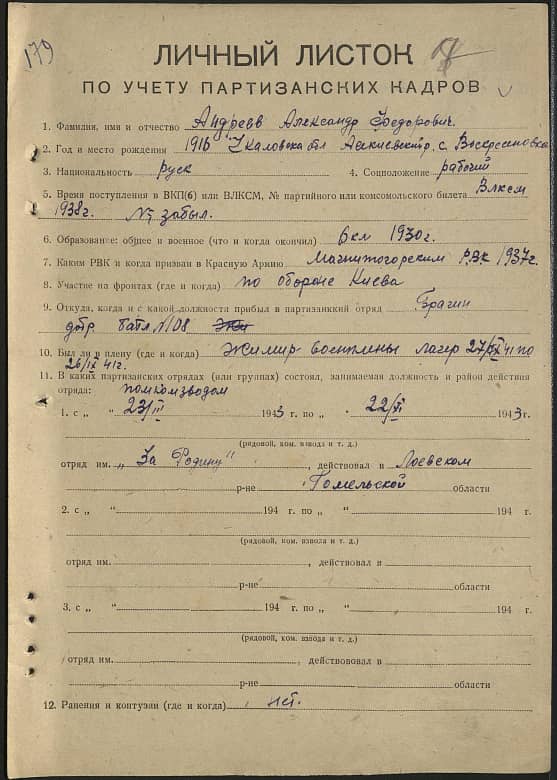 179
ЛИЧНЫЙ ЛИСТОК
ПО УЧЕТУ ПАРТИЗАНСКИХ КАДРОВ
1. Фамилия, имя и отчество Андреев Александр Федорович.
2. Год и место рождения 1916 Чкаловска обл с. Воскресеновка
3. Национальность руск 4. Соцположение рабочий
5. Время поступления в ВКП(б) или ВЛКСМ, № партийного или комсомольского билета Влксм
1938г. № забыл.
6. Образование: общее и военное (что и когда окончил) 6 кл 1930г.
7. Каким РВК и когда призван в Красную Армию Магнитогорским РВК 1937г.
8. Участие на фронтах (где и когда) по обороне Киева
9. Откуда, когда и с какой должности прибыл в партизанский отряд Брагин
добр. батл. №108
10. Был ли в плену (где и когда) Житмир военплены лагер 27/IX 41 по
26/IX 41г.
11. В каких партизанских отрядах (или группах) состоял, занимаемая должность и район действия
отряда: помкомзводом
1. с „ 23/III 1943 г. по „ 22/VI 1943г.
(рядовой, ком. взвода и т. д.)
отряд им. „За Родину" , действовал в Лоевском
р-не Гомельской области
2. с „ “ 194 г. по „ “ 194 г.
(рядовой, ком. взвода и т. д.)
отряд им. , действовал в
р-не области
3. с „ “ 194 г. по „ “ 194 г.
(рядовой, ком. взвода и т. д.)
отряд им. , действововал в
р-не области
12. Ранения и контузии (где и когда) нет.